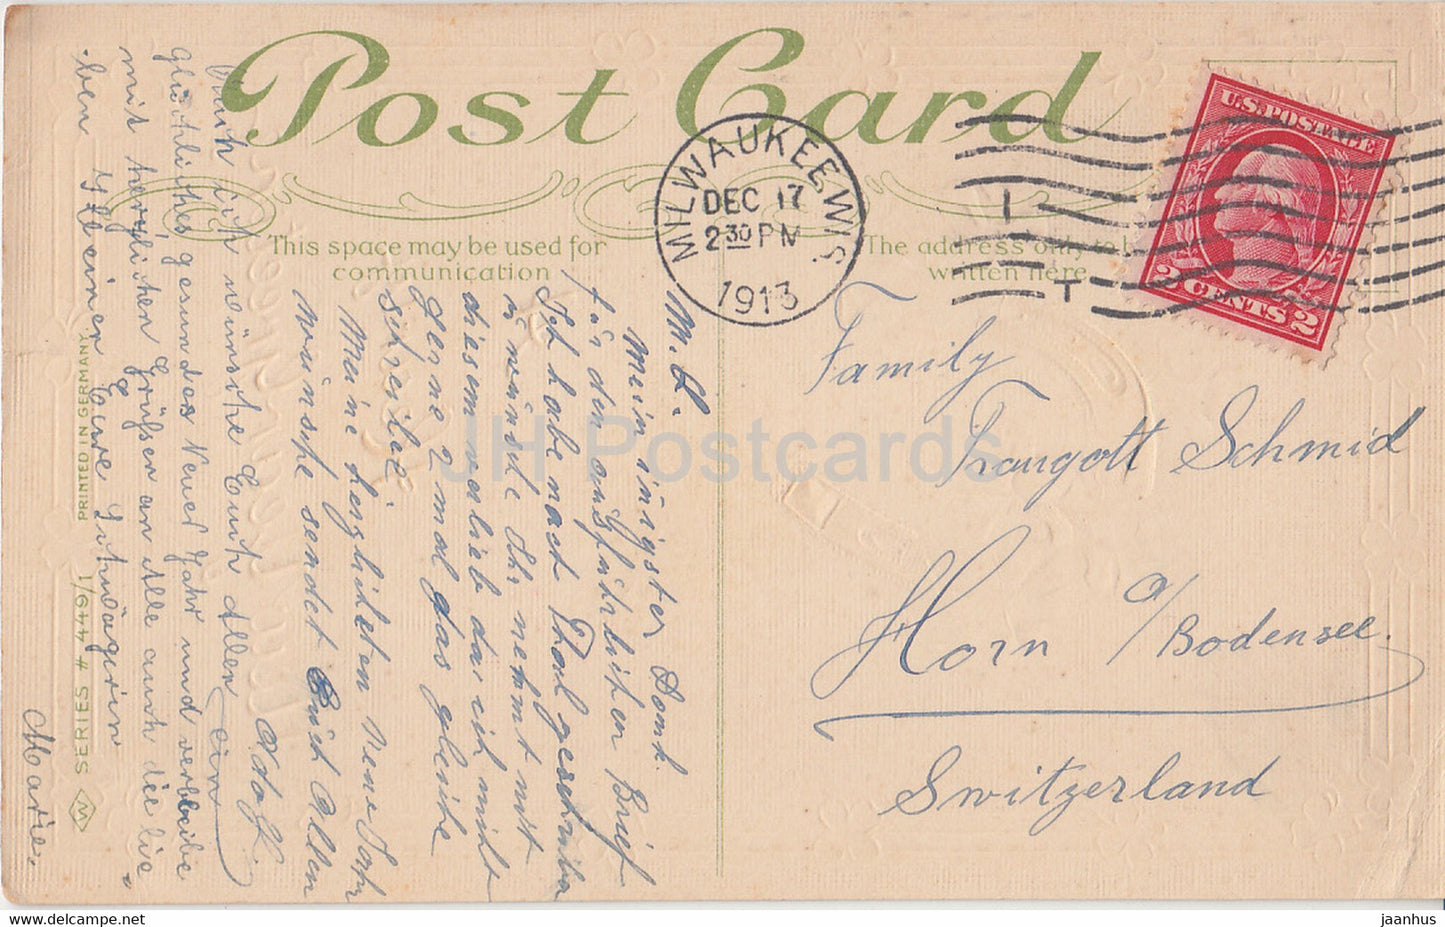 Post Card
This space may be used for
communication
The address only to be
written here
MILWAUKEE WIS.
DEC 17
2 30 PM
1913
U.S. POSTAGE
2 CENTS 2
Family
Traugott Schmid
Horn a/Bodensee.
Switzerland
M. L.
Mein innigster Dank.
für den ausführlichen Brief
Ich habe nach Thal geschrieben
u wünsche Ihr nehmt mit
diesem vorlieb das ich nicht
gerne 2 mal das gleiche
schreibe
Meine herzlichsten Neue Jahr
wünsche sendet Euch Allen
Adolf.
Auch ich wünsche Euch Allen ein
glückliches gesundes Neues Jahr und verbleibe
mit herzlichen Grüßen an Alle auch die lie
ben Kleinen Eure Schwägerin
Marie.
PRINTED IN GERMANY
SERIES # 449/1
W
JH Postcards
jaanhus